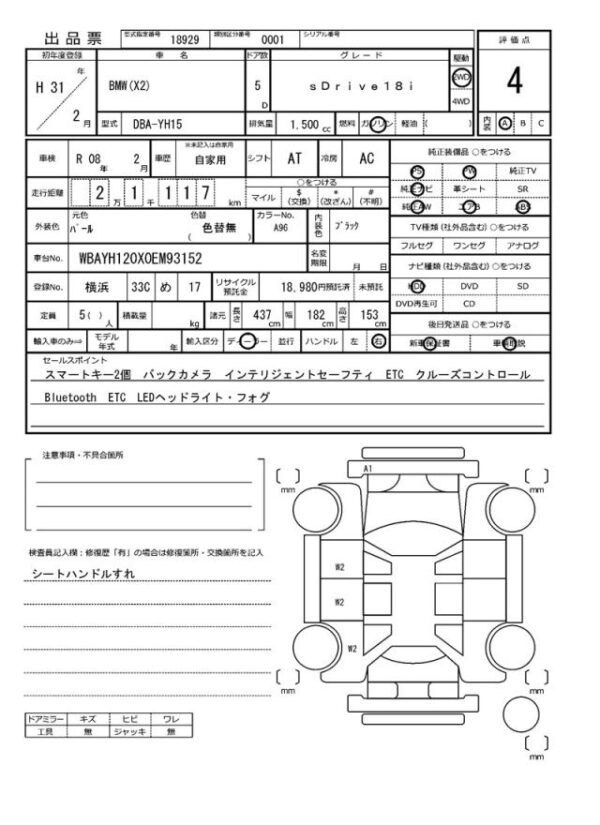 出品票 型式指定番号 18929 類別区分番号 0001 シリアル番号
初年度登録 車名 ドア数 グレード 駆動 評価点
H 31 年 2 月 BMW(X2) 5 D sDrive18i 2WD 4WD 4
型式 DBA-YH15 排気量 1,500 cc 燃料 ガソリン 軽油 ( ) 内装 A B C
車検 R 08 年 2 月 車歴 ※未記入は自家用 自家用 シフト AT 冷房 AC
純正装備品 ○をつける
PS PW 純正TV
純正ナビ 革シート SR
純正AW エアB ABS
走行距離 2 万 1 千 117 km ○をつける マイル $ (交換) * (改ざん) # (不明)
外装色 元色 パール 色替 色替無 ( ) カラーNo. A96 内装色 ブラック
TV種類(社外品含む)○をつける
フルセグ ワンセグ アナログ
車台No. WBAYH120X0EM93152 名変期限 月 日
ナビ種類(社外品含む)○をつける
登録No. 横浜 33C め 17 リサイクル預託金 18,980円預託済 未預託
HDD DVD SD
DVD再生可 CD
定員 5 ( ) 人 積載量 kg 諸元 長さ 437 cm 幅 182 cm 高さ 153 cm
後日発送品 ○をつける
輸入車のみ⇒ モデル年式 年 輸入区分 ディーラー 並行 ハンドル 左 右
新車保証書 車輌取説
セールスポイント
スマートキー2個 バックカメラ インテリジェントセーフティ ETC クルーズコントロール
Bluetooth ETC LEDヘッドライト・フォグ
注意事項・不具合箇所
検査員記入欄:修復歴「有」の場合は修復箇所・交換箇所を記入
シートハンドルすれ
A1
W2
W2
W2
mm
mm
mm
mm
mm
ドアミラー キズ ヒビ ワレ
工具 無 ジャッキ 無